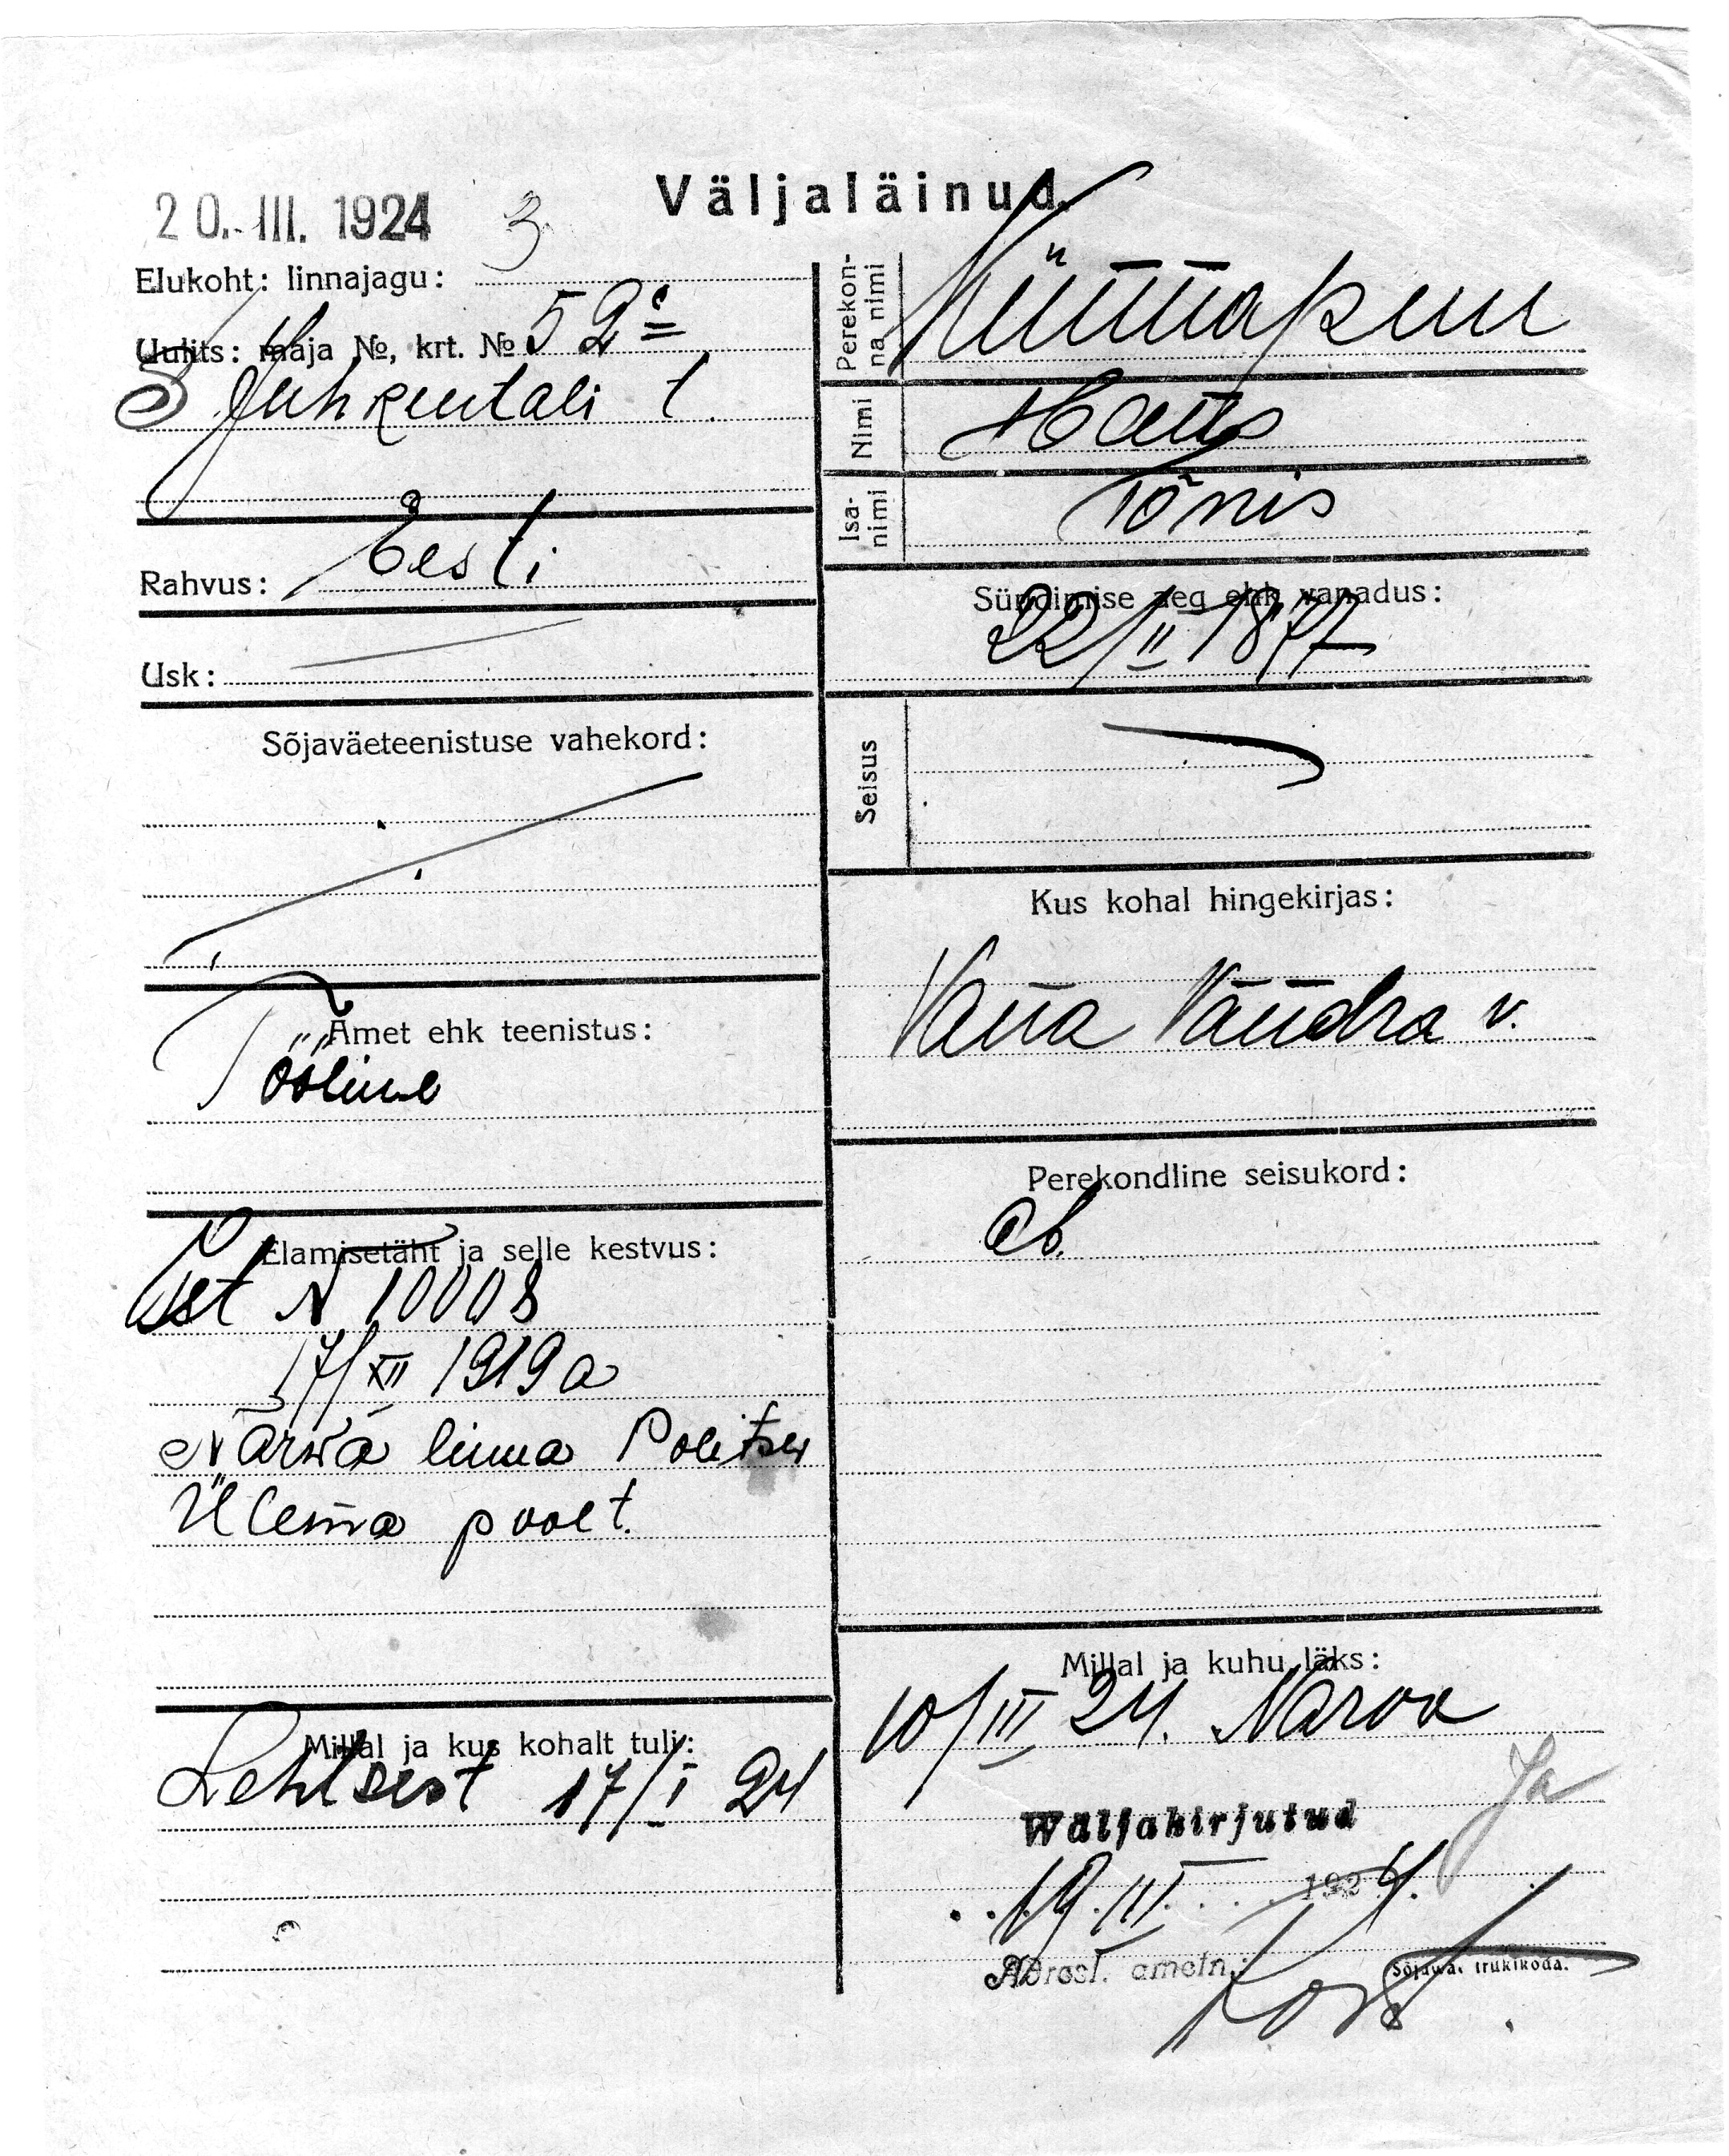 20. III. 1924
3
Väljaläinud.
Elukoht: linnajagu:
Uulits: maja №, krt. № 52
S Juhkentali t.
Rahvus: Eesti
Usk:
Sõjaväeteenistuse vahekord:
Amet ehk teenistus:
Tööline
Elamisetäht ja selle kestvus:
N 10008
17/XII 1919 a
Narva linna Politsei
Ülema poolt.
Millal ja kus kohalt tuli:
Lehtsest 17/I 24
Perekon-
na nimi
Nimi
Hans
Isa-
nimi
Tõnis
Sündimise aeg ehk vanadus:
22/II 1877
Seisus
Kus kohal hingekirjas:
Vana Vändra v.
Perekondline seisukord:
ab.
Millal ja kuhu läks:
10/III 24. Narva
Ja
Wäljakirjutud
19.III. 1924.
Adresl. ametn.:
Sõjawä. trükikoda.